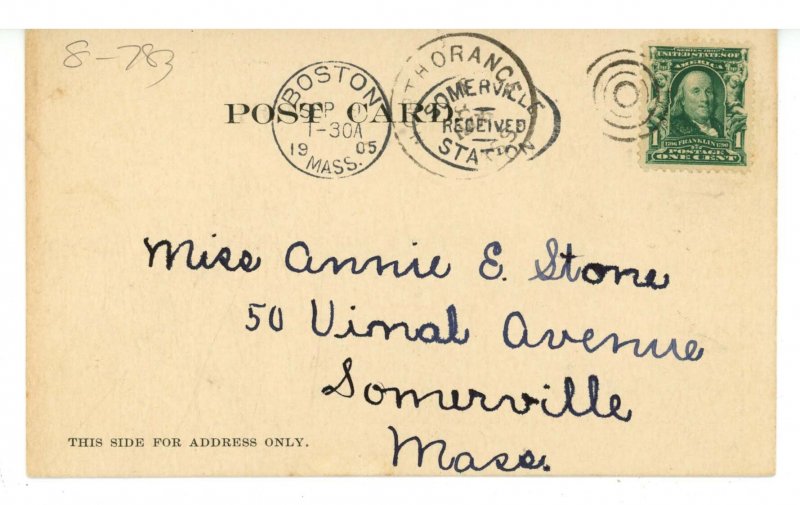 8-783
POST CARD.
BOSTON
SEP
1-30A
19 05
MASS.
SOMERVILLE
RECEIVED
STATION
SERIES 1902
UNITED STATES OF
AMERICA
1706 FRANKLIN 1790
POSTAGE
1 ONE CENT 1
Miss Annie E. Stone
50 Vinal Avenue
Somerville
Mass.
THIS SIDE FOR ADDRESS ONLY.